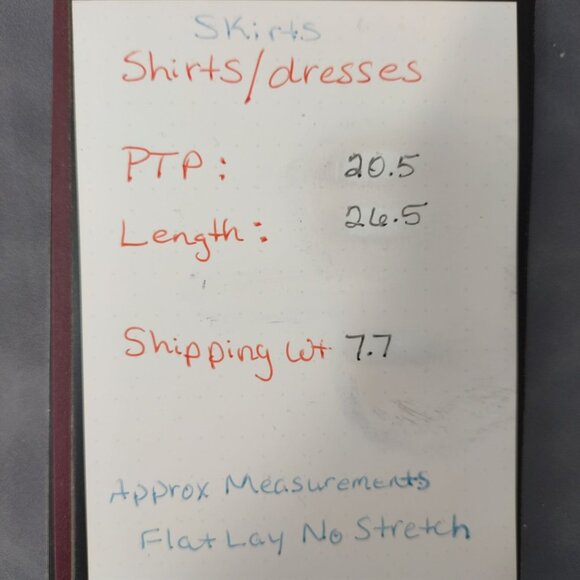 Skirts
Shirts/dresses
PTP: 20.5
Length: 26.5
Shipping Wt 7.7
Approx Measurements
Flat Lay No Stretch